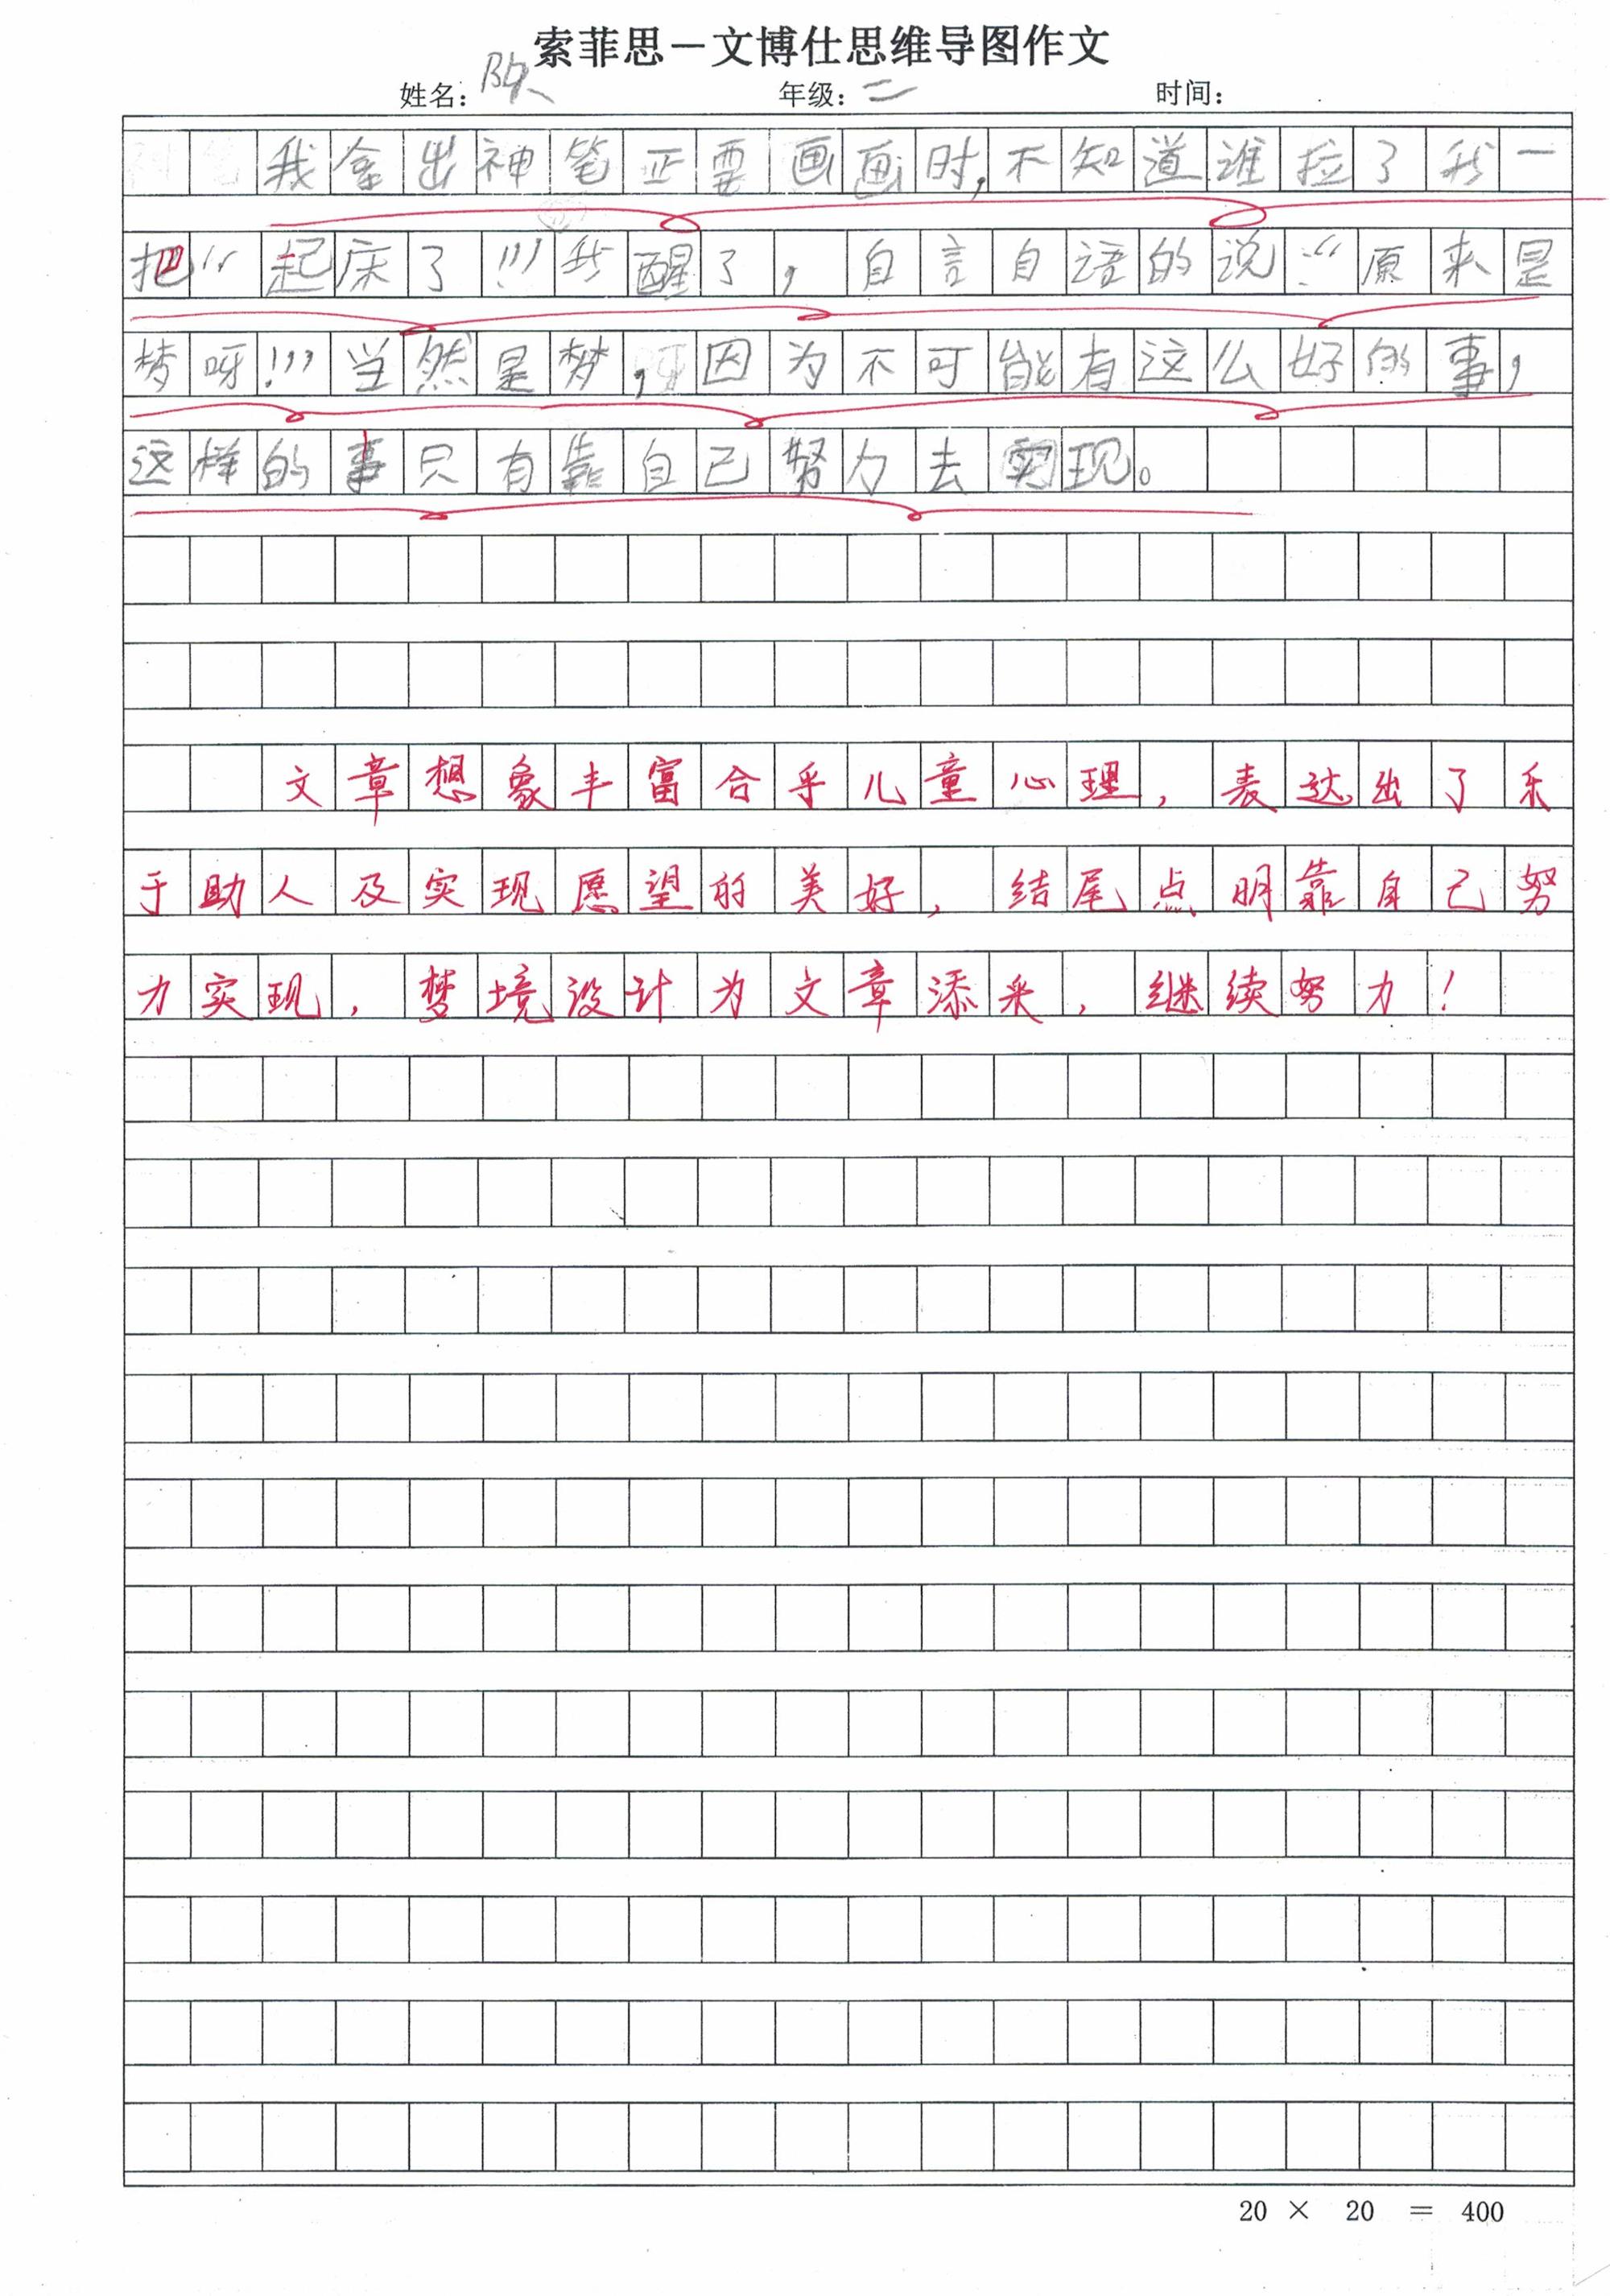 索菲思－文博仕思维导图作文
姓名： 年级：二 时间：
我拿出神笔正要画画时，不知道谁拉了我一
把“起床了！”我醒了，自言自语的说：“原来是
梦呀！”当然是梦，因为不可能有这么好的事，
这样的事只有靠自己努力去实现。
文章想象丰富合乎儿童心理，表达出了乐
于助人及实现愿望的美好，结尾点明靠自己努
力实现，梦境设计为文章添采，继续努力！
20 × 20 ＝ 400